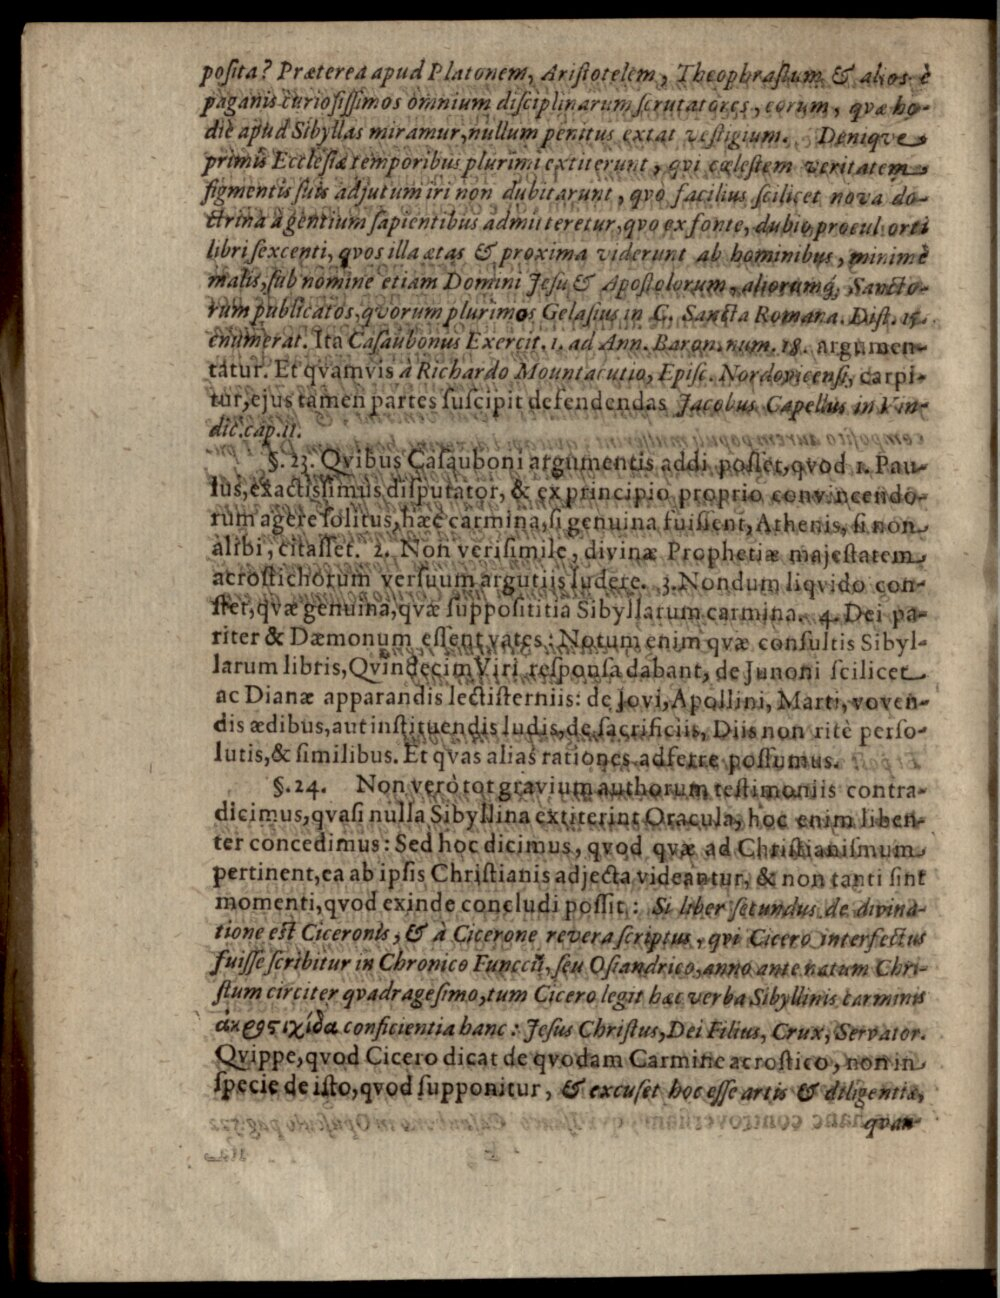 posita? Præterea apud Platonem, Aristotelem, Theophrastum & alios è
paganis curiosissimos omnium disciplinarum scrutatores, eorum, qvæ ho-
diè apud Sibyllas miramur, nullum penitus extat vestigium. Deniqve
primis Ecclesiæ temporibus plurimi extiterunt, qvi cœlestem veritatem
figmentis suis adjutum iri non dubitarunt, qvo facilius scilicet nova do-
ctrina à gentium sapientibus admitteretur, qvo ex fonte, dubio procul orti
libri sexcenti, qvos illa ætas & proxima viderunt ab hominibus, minimè
malis, sub nomine etiam Domini Jesu & Apostolorum, aliorumq́; Sancto-
rum publicatos, qvorum plurimos Gelasius in C. Sancta Romana. Dist. 15.
enumerat. Ita Casaubonus Exercit. 1. ad Ann. Baron. num. 18. argumen-
tatur. Et qvamvis à Richardo Mountacutio, Episc. Nordovicensi, carpi-
tur, ejus tamen partes suscipit defendendas Jacobus Capellus in Vin-
dic. cap. 11.
§. 23. Qvibus Casauboni argumentis addi posset, qvod 1. Pau-
lus, exactissimus disputator, & ex principio proprio convincendo-
rum agere solitus, hæc carmina, si genuina fuissent, Athenis, si non
alibi, citasset. 2. Non verisimile, divinæ Prophetiæ majestatem
acrostichorum versuum argutiis ludere. 3. Nondum liqvido con-
stet, qvæ genuina, qvæ supposititia Sibyllarum carmina. 4. Dei pa-
riter & Dæmonum essent vates: Notum enim qvæ consultis Sibyl-
larum libris, Qvindecim Viri responsa dabant, de Junoni scilicet
ac Dianæ apparandis lectisterniis: de Jovi, Apollini, Marti, voven-
dis ædibus, aut instituendis ludis, de sacrificiis, Diis non ritè perso-
lutis, & similibus. Et qvas alias rationes adferre possumus.
§. 24. Non verò tot gravium authorum testimoniis contra-
dicimus, qvasi nulla Sibyllina extiterint Oracula, hoc enim liben-
ter concedimus: Sed hoc dicimus, qvod qvæ ad Christianismum
pertinent, ea ab ipsis Christianis adjecta videantur, & non tanti sint
momenti, qvod exinde concludi possit: Si liber secundus de divina-
tione est Ciceronis, & à Cicerone revera scriptus, qvi Cicero interfectus
fuisse scribitur in Chronico Funccii, seu Osiandrico, anno ante natum Chri-
stum circiter qvadragesimo, tum Cicero legit hæc verba Sibyllinis carminis
ἀκροςιχίδα conficientia hanc: Jesus Christus, Dei Filius, Crux, Servator.
Qvippe, qvod Cicero dicat de qvodam Carmine acrostico, non in
specie de isto, qvod supponitur, & excuset hoc esse artis & diligentiæ,
qvan-